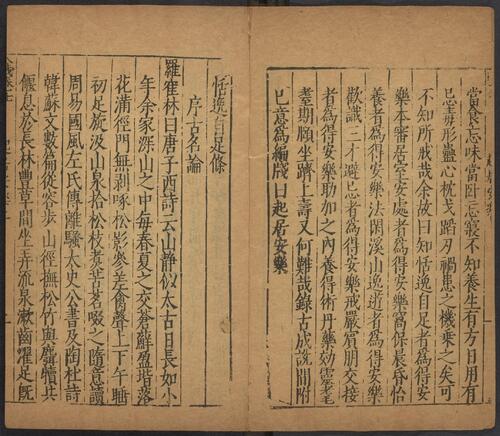 當食忘味當臥忘寢不知養生有方日用有
忌毒形蠱心枕戈蹈刃禍患之機乘之矣可
不知所戒哉余故曰知恬逸自足者爲得安
樂本審居室安處者爲得安樂窩保晨昏怡
養者爲得安樂法閑溪山逸遊者爲得安樂
歡識三才避忌者爲得安樂戒嚴賓朋交接
者爲得安樂助加之內養得術丹藥効靈耄
耋期頤坐躋上壽又何難哉錄古成說間附
已意爲編牋曰起居安樂
恬逸自足條
序古名論
羅鶴林曰唐子西詩云山靜似太古日長如小
年余家深山之中每春夏之交蒼蘚盈堦落
花滿徑門無剥啄松影參差禽聲上下午睡
初足旋汲山泉拾松枝煮苦茗啜之隨意讀
周易國風左氏傳離騷太史公書及陶杜詩
韓蘇文數篇從容步山徑撫松竹與麛犢共
偃息於長林豐草間坐弄流泉漱齒濯足既